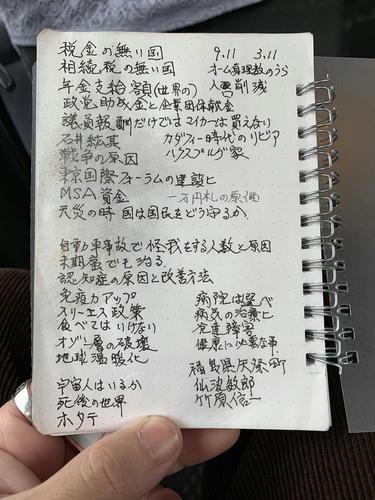 税金の無い国　9.11　3.11
相続税の無い国　オーム真理教のうら
年金支給額(世界の)　人口削減
政党助成金と企業団体献金
議員報酬だけではマイカーは買えない
石井紘基　カダフィー時代のリビア
戦争の原因　ハプスブルグ家
東京国際フォーラムの建設ヒ
MSA資金　一万円札の原価
天災の時 国は国民をどう守るか
自動車事故で怪我をする人数と原因
末期癌でも治る
認知症の原因と改善方法
免疫力アップ　病院は選べ
スリーエス政策　病気の治療ヒ
食べてはいけない　発達障害
オゾン層の破壊　健康に必要な事
地球温暖化
福島県矢祭町
宇宙人はいるか　仙波敏郎
死後の世界　竹原信一
ホタテ